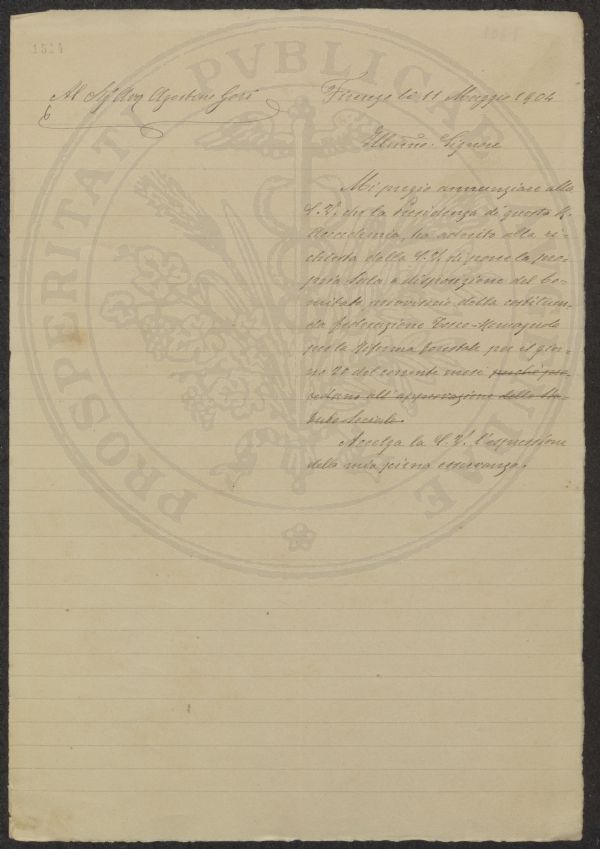 1514
Al Sig. Avv. Agostino Gori
Firenze li 11 Maggio 1904
Illmo. Signore
Mi pregio annunziare alla
S. V. che la Presidenza di questa R.
Accademia, ha aderito alla ri-
chiesta della S. V. di porre la pro-
pria Sala a disposizione del Co-
mitato provvisorio della costituen-
da federazione Tosco-Romagnola
per la Riforma forestale per il gior-
no 20 del corrente mese perchè pro-
cedano all'approvazione dello Sta-
tuto Sociale.
Accolga la S. V. l'espressione
della mia piena osservanza.
PROSPERITATI PVBLICAE